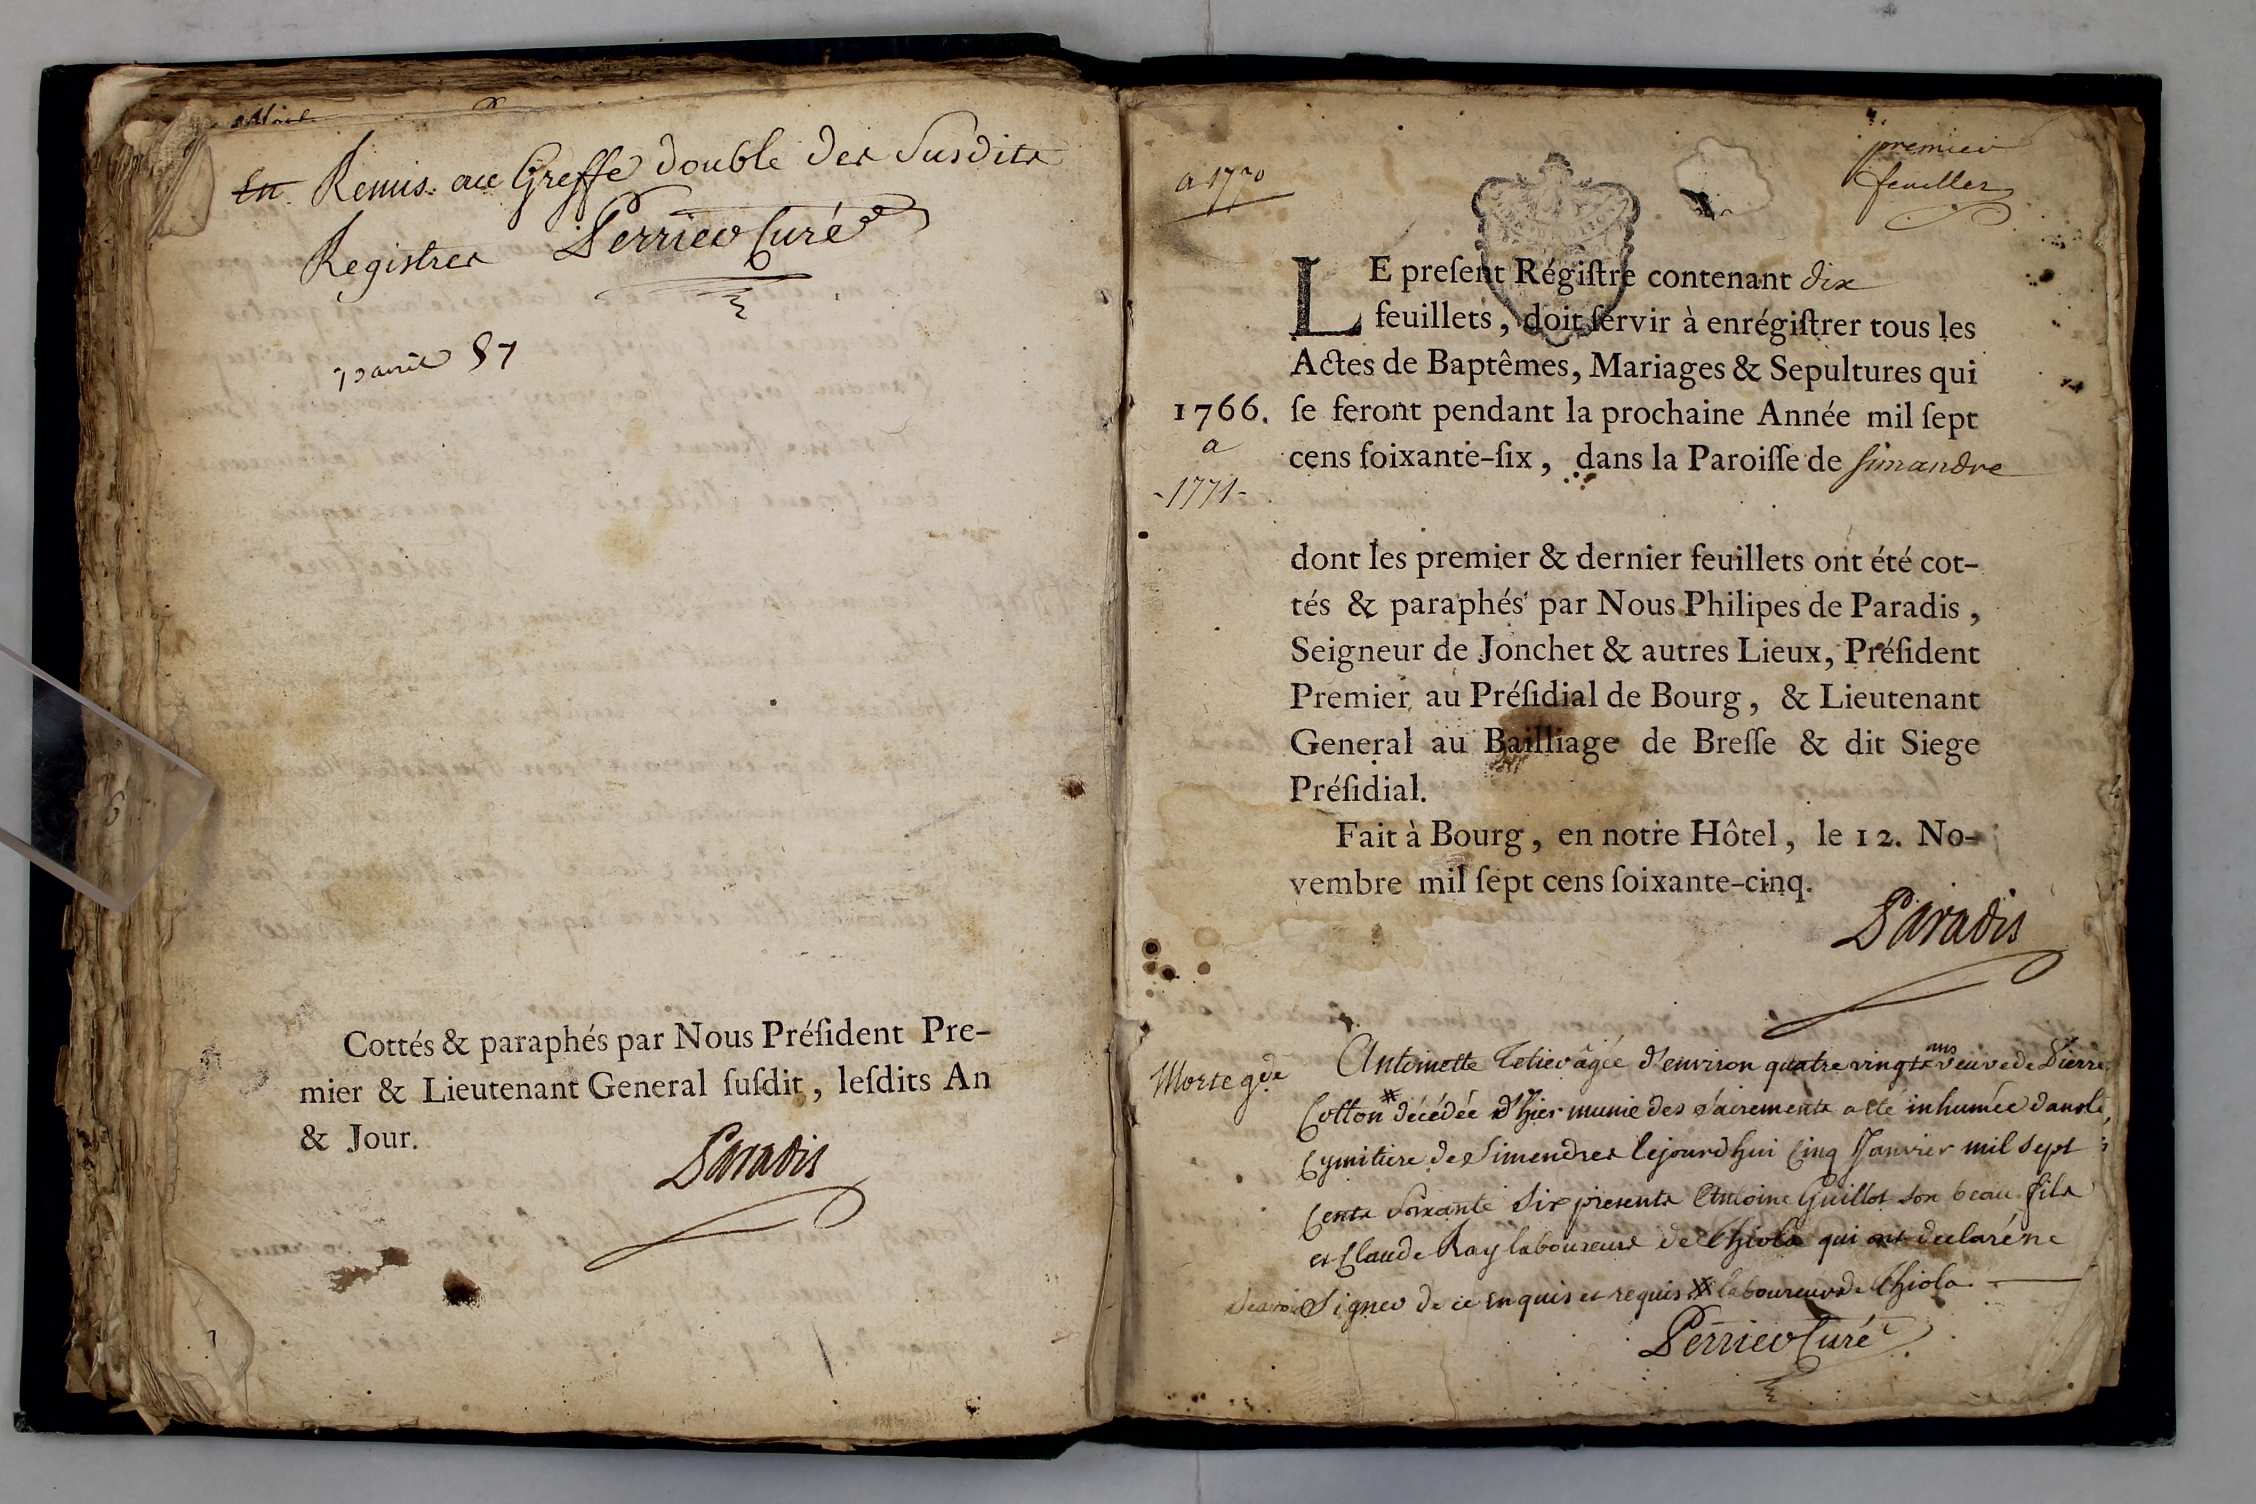 Remis au Greffe double des Susdits
Registres Perrier Curé
avril 87
Cottés & paraphés par Nous Préſident Pre-
mier & Lieutenant General ſuſdit, leſdits An
& Jour.
Paradis
a 1770
premier
feuillet
LE preſent Régiſtre contenant dix
feuillets, doit ſervir à enrégiſtrer tous les
Actes de Baptêmes, Mariages & Sepultures qui
1766. ſe feront pendant la prochaine Année mil ſept
a
cens ſoixante-ſix, dans la Paroiſſe de simandre
-1771-
dont les premier & dernier feuillets ont été cot-
tés & paraphés par Nous Philipes de Paradis,
Seigneur de Jonchet & autres Lieux, Préſident
Premier au Préſidial de Bourg, & Lieutenant
General au Bailliage de Breſſe & dit Siege
Préſidial.
Fait à Bourg, en notre Hôtel, le 12. No-
vembre mil ſept cens ſoixante-cinq.
Paradis
Morte gde
Antoinette âgée d'environ quatre vingts ans veuve de Pierre
Cotton décédée d'hier munie des sacrements a été inhumée dans le
Cymitiere de Simendres cejourdhui cinq Janvier mil sept
cents soixante six presents Antoine Guillot son beau fils
et Claude Ray laboureurs de Chiola qui ont declaré ne
scavoir signer de ce enquis et requis laboureur de Chiola.
Perrier Curé